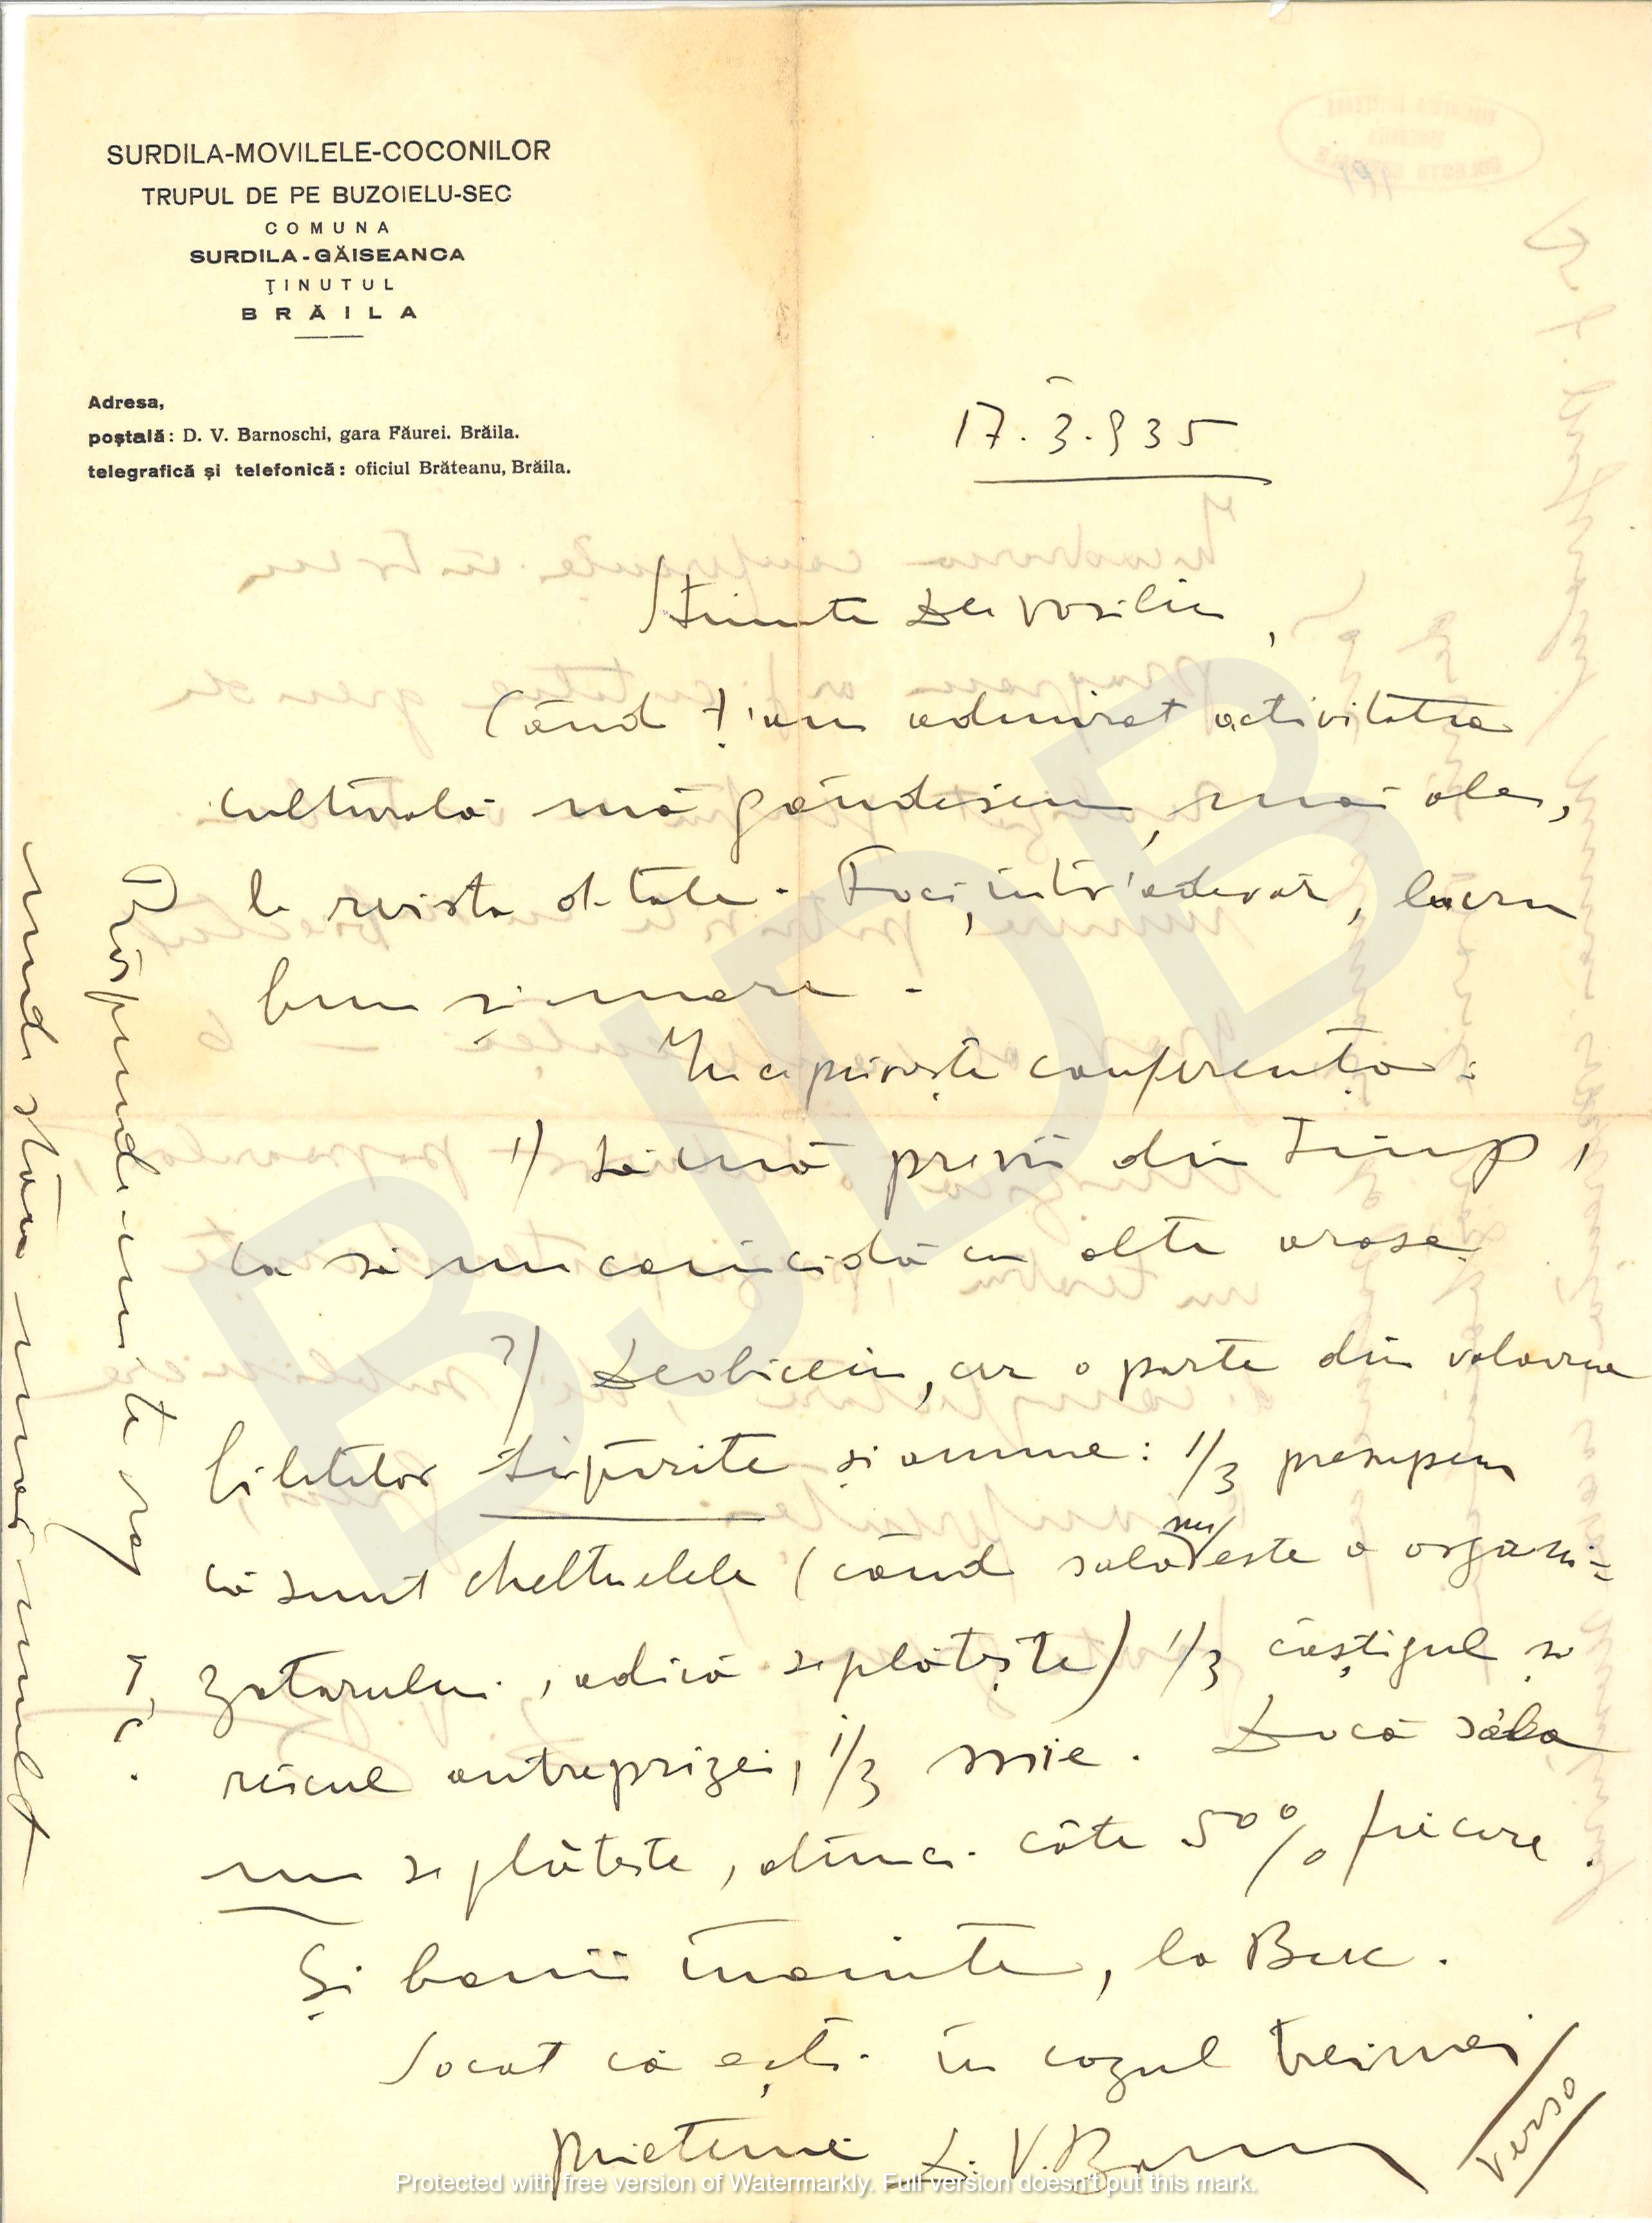 SURDILA-MOVILELE-COCONILOR
TRUPUL DE PE BUZOIELU-SEC
COMUNA
SURDILA-GĂISEANCA
ŢINUTUL
BRĂILA
Adresa,
poştală: D. V. Barnoschi, gara Făurei. Brăila.
telegrafică şi telefonică: oficiul Brăteanu, Brăila.
17.3.935
Stimate Dle Vasiliu,
Când ţ'am admirat activitatea
culturală mă gândeam, mai ales,
la revista d-tale. Faci, într'adevăr, lucru
bun şi mare.
În ce priveşte conferenţa:
1) Să mă previi din timp,
ca să nu coincidă cu alte oraşe.
2) Deobiceiu, cer o parte din valoarea
biletelor tipărite şi anume: 1/3 presupun
că sunt cheltuelele (când sala nu este a organi=
zatorului, adică se plăteşte) 1/3 câştigul şi
riscul antreprizei, 1/3 mie. Dacă sala
nu se plăteşte, atunci câte 50% fiecare.
Şi banii înainte, la Buc.
Socot că eşti în cazul treimei
prietenie D. V. Barnoschi
Verso
Răspunde-mi te rog
unde stau mai mult
BJDB
Protected with free version of Watermarkly. Full version doesn't put this mark.